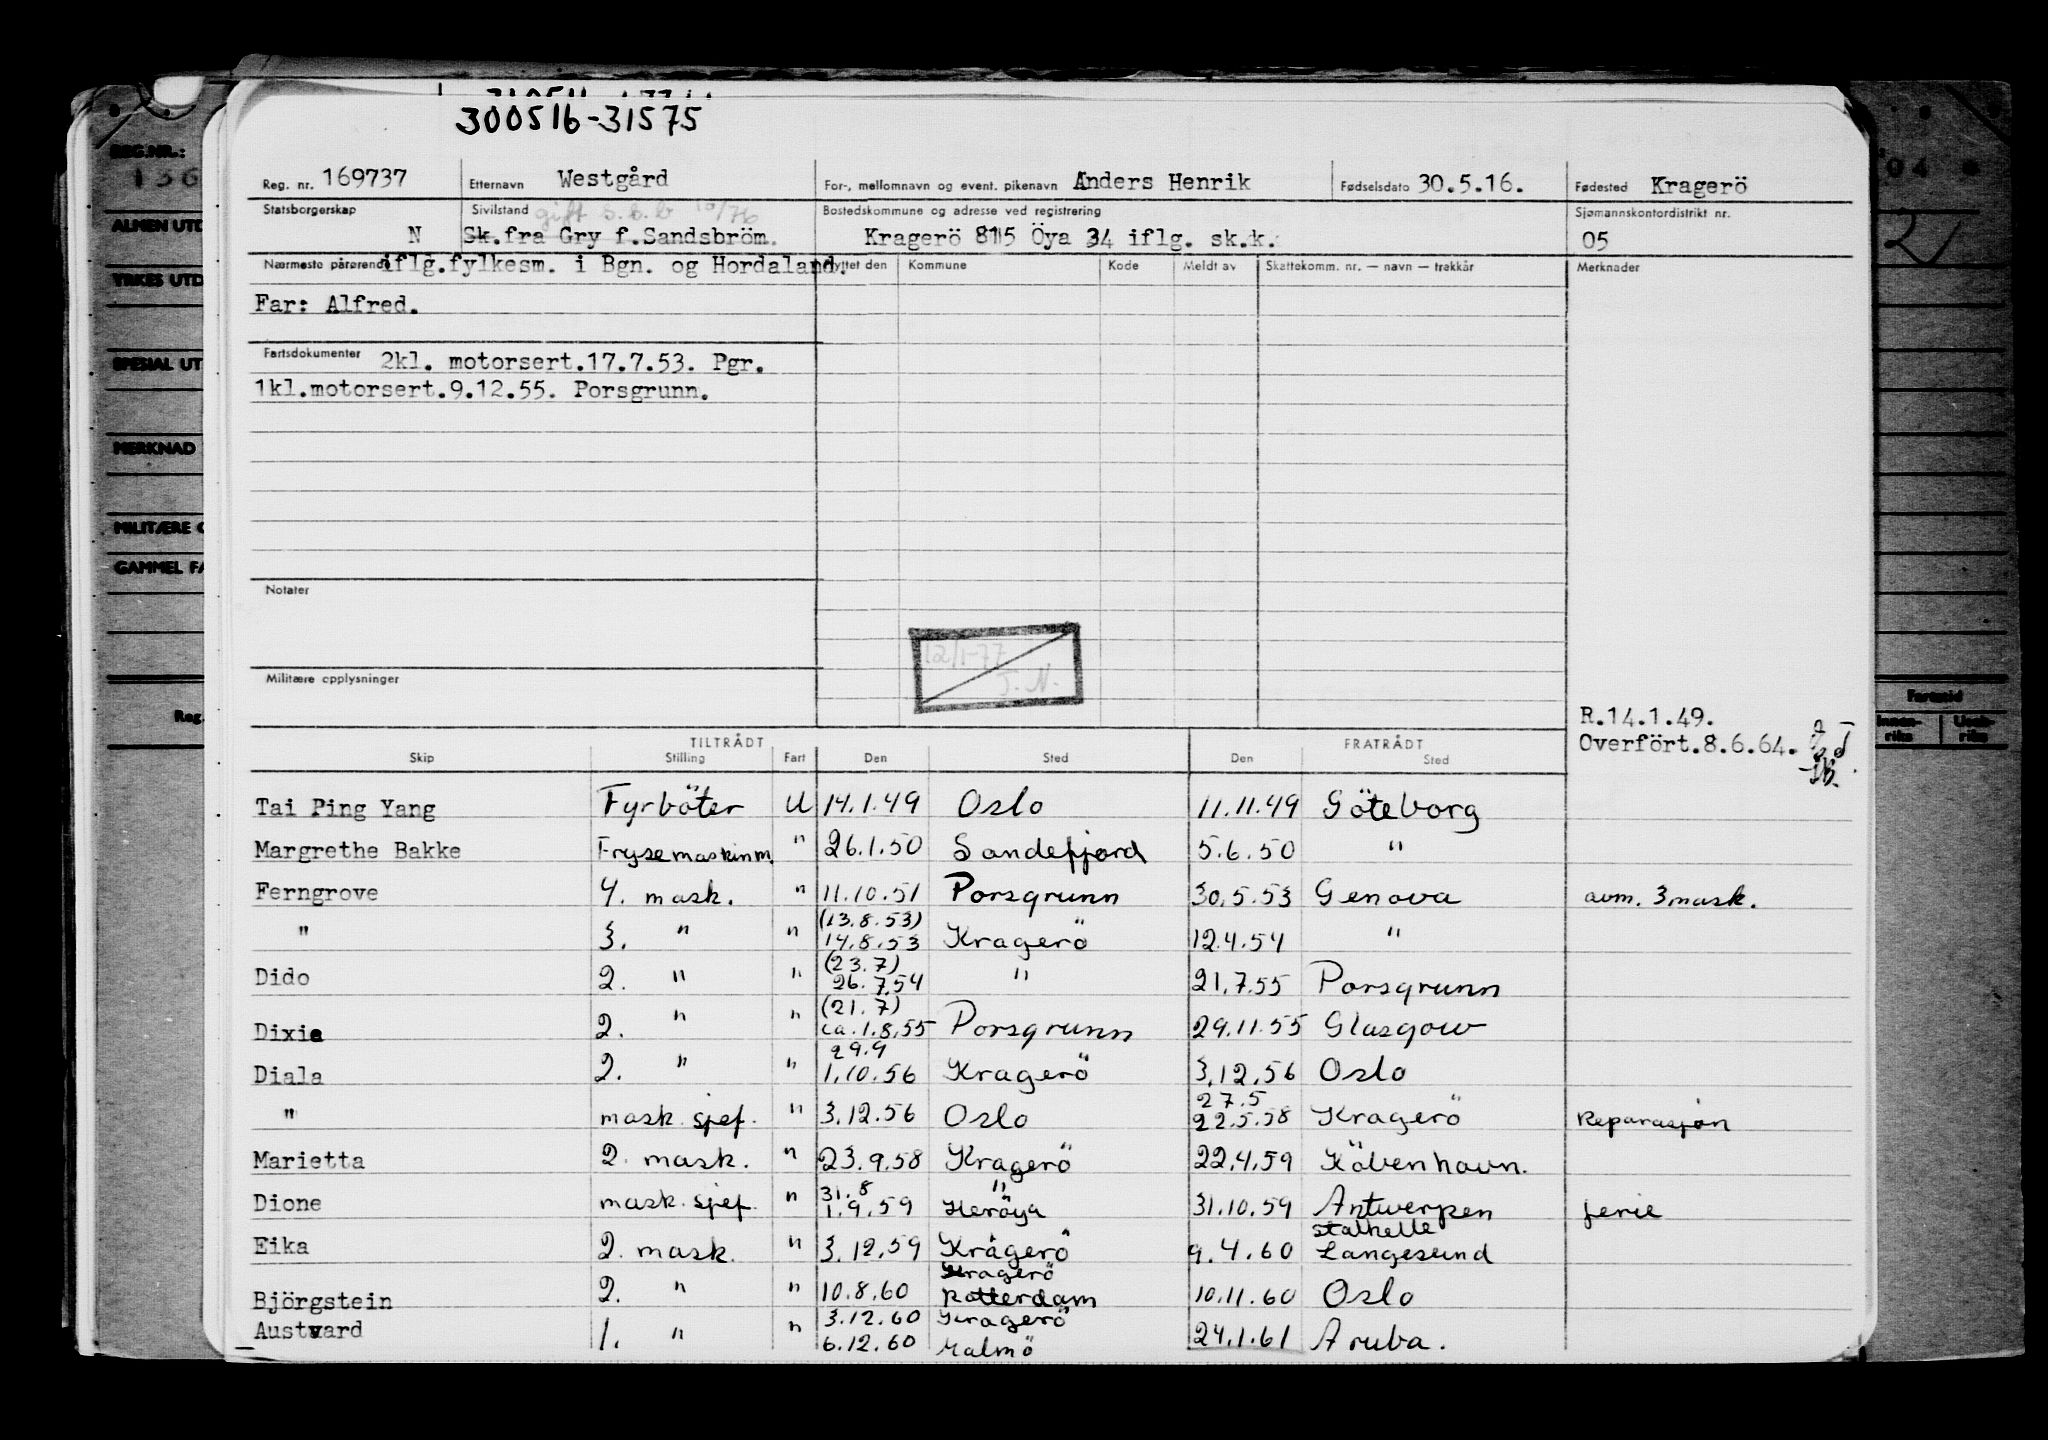 300516-31575
Reg. nr. 169737 Etternavn Westgård For-, mellomnavn og event. pikenavn Anders Henrik Fødselsdato 30.5.16. Fødested Kragerö
Statsborgerskap N Sivilstand gift s.b.b 10/76 Bostedskommune og adresse ved registrering Sjømannskontordistrikt nr.
Sk.fra Gry f.Sandsbröm. Kragerö 8115 Öya 34 iflg. sk.k. 05
Nærmeste pårørende iflg.fylkesm. i Bgn. og Hordaland. Flyttet den Kommune Kode Meldt av Skattekomm. nr. — navn — trekkår Merknader
Far: Alfred.
Fartsdokumenter 2kl. motorsert.17.7.53. Pgr.
1kl.motorsert.9.12.55. Porsgrunn.
Notater
12/1-77
J.N.
Militære opplysninger
R.14.1.49.
Overfört.8.6.64.
TILTRÅDT FRATRÅDT
Skip Stilling Fart Den Sted Den Sted
Tai Ping Yang Fyrböter U 14.1.49 Oslo 11.11.49 Göteborg
Margrethe Bakke Frysemaskinm. " 26.1.50 Sandefjord 5.6.50 "
Ferngrove 4. mask. " 11.10.51 Porsgrunn 30.5.53 Genova avm. 3.mask.
(13.8.53)
" 3. " " 14.8.53 Kragerö 12.4.54 "
(23.7)
Dido 2. " " 26.7.54 " 21.7.55 Porsgrunn
(21.7)
Dixie 2. " " ca.1.8.55 Porsgrunn 29.11.55 Glasgow
29.9
Diala 2. " " 1.10.56 Kragerö 3.12.56 Oslo
27.5
" mask.sjef. " 3.12.56 Oslo 22.5.58 Kragerö Reparasjon
Marietta 2. mask. " 23.9.58 Kragerö 22.4.59 Köbenhavn.
31.8 "
Dione mask.sjef. " 1.9.59 Heröya 31.10.59 Antwerpen ferie
Stathelle
Eika 2. mask. " 3.12.59 Kragerö 9.4.60 Langesund
Kragerö
Björgstein 2. " " 10.8.60 Rotterdam 10.11.60 Oslo
3.12.60 Kragerö
Austvard 1. " " 6.12.60 Malmö 24.1.61 Aruba.
REG.NR.:
136
04
ALMEN UTD
YRKES UTD
SPESIAL UT
MERKNAD
MILITÆRE O
GAMMEL FA
Reg.
Fartstid
Innen-
riks
Uten-
riks